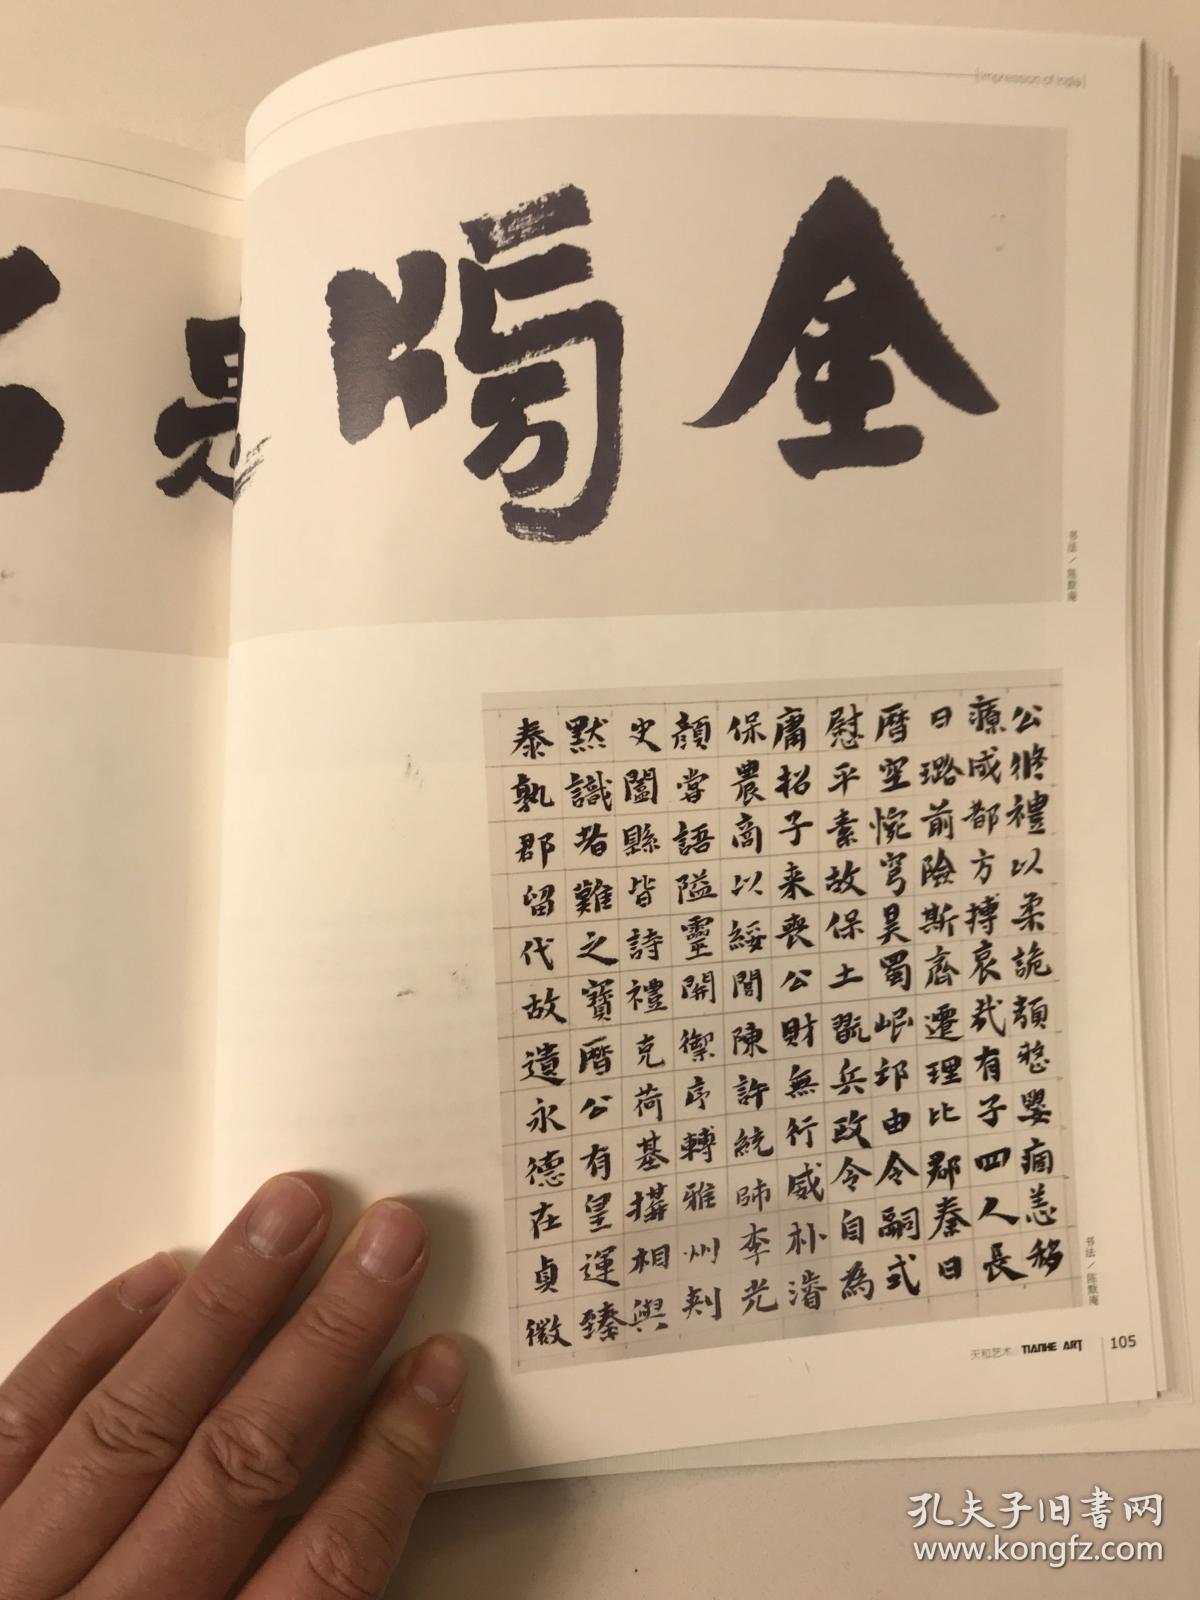 [impression of India]
金
是
书法／陈默庵
公修禮以柔詭頡嬰痼恙移
療成都方搏哀哉有子四人長
日璐前險斯齋遷理比郡秦日
曆空惋穹昊蜀岷邛由令嗣式
慰平素故保土翫兵政令自為
庸招子来喪公財無行威朴濬
保農商以綏間陳許統師李光
顏當語隘靈開禦序轉雅州刺
史闔縣皆詩禮克荷基搆相與
默識者難之寶曆公有皇運臻
泰孰郡留代故遺永德在貞徽
书法／陈默庵
天和艺术 TIANHE ART 105
孔夫子旧书网
www.kongfz.com